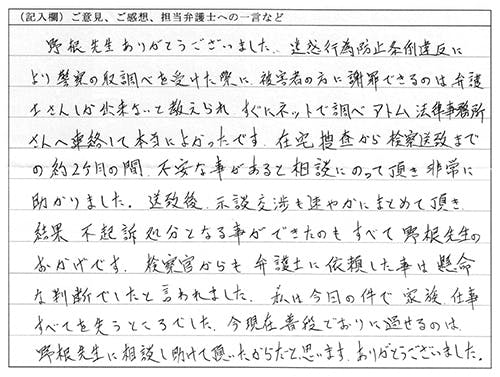 （記入欄）ご意見、ご感想、担当弁護士への一言など
野根先生ありがとうございました。迷惑行為防止条例違反に
より警察の取調べを受けた際に、被害者の方に謝罪できるのは弁護
士さんしか出来ないと教えられ、すぐにネットで調べアトム法律事務所
さんへ連絡して本当によかったです。在宅捜査から検察送致まで
の約2ヶ月の間、不安な事があると相談にのって頂き非常に
助かりました。送致後、示談交渉も速やかにまとめて頂き
結果 不起訴処分となる事ができたのもすべて野根先生の
おかげです。検察官からも弁護士に依頼した事は懸命
な判断でしたと言われました。私は今回の件で家族、仕事
すべてを失うところでした。今現在普段どおりに過せるのは、
野根先生に相談し助けて頂いたからだと思います。ありがとうございました。